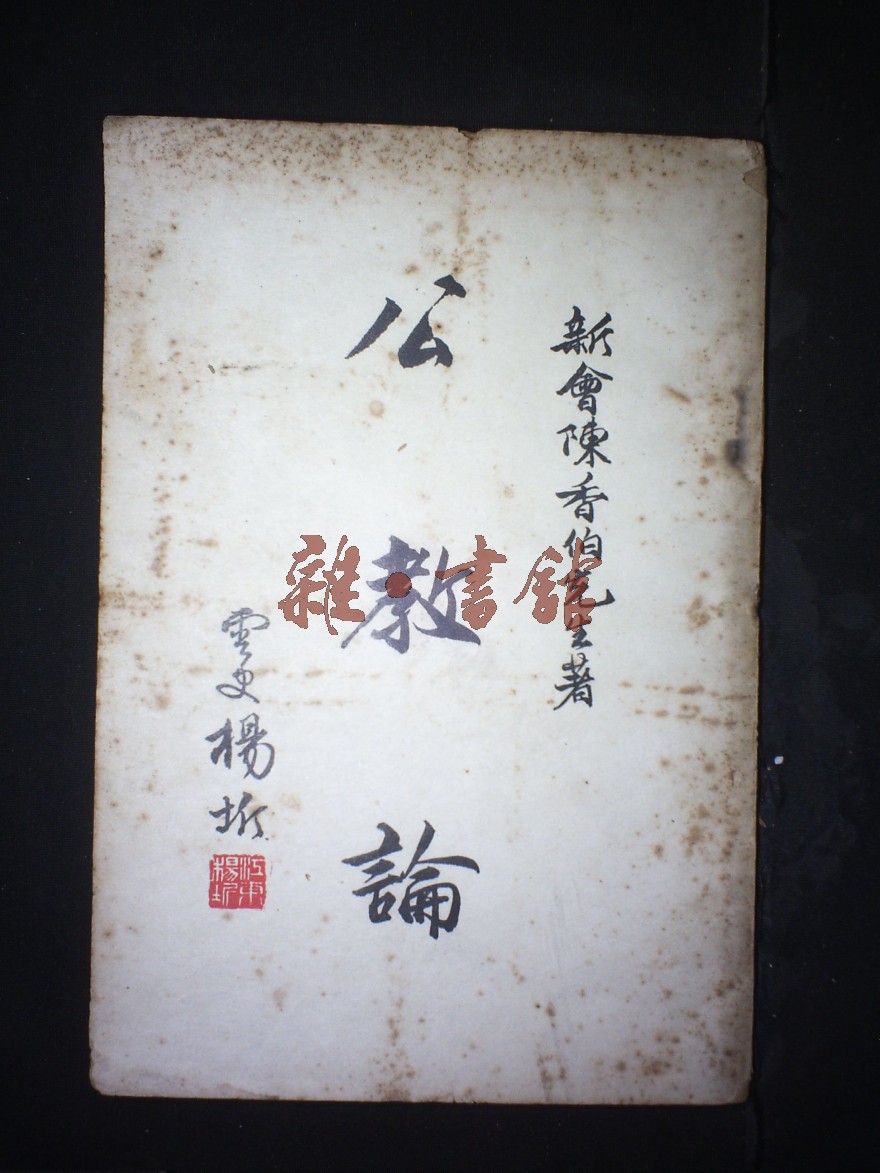 新會陳香伯先生著
公教論
雲史楊圻
江東楊圻
雜·書館